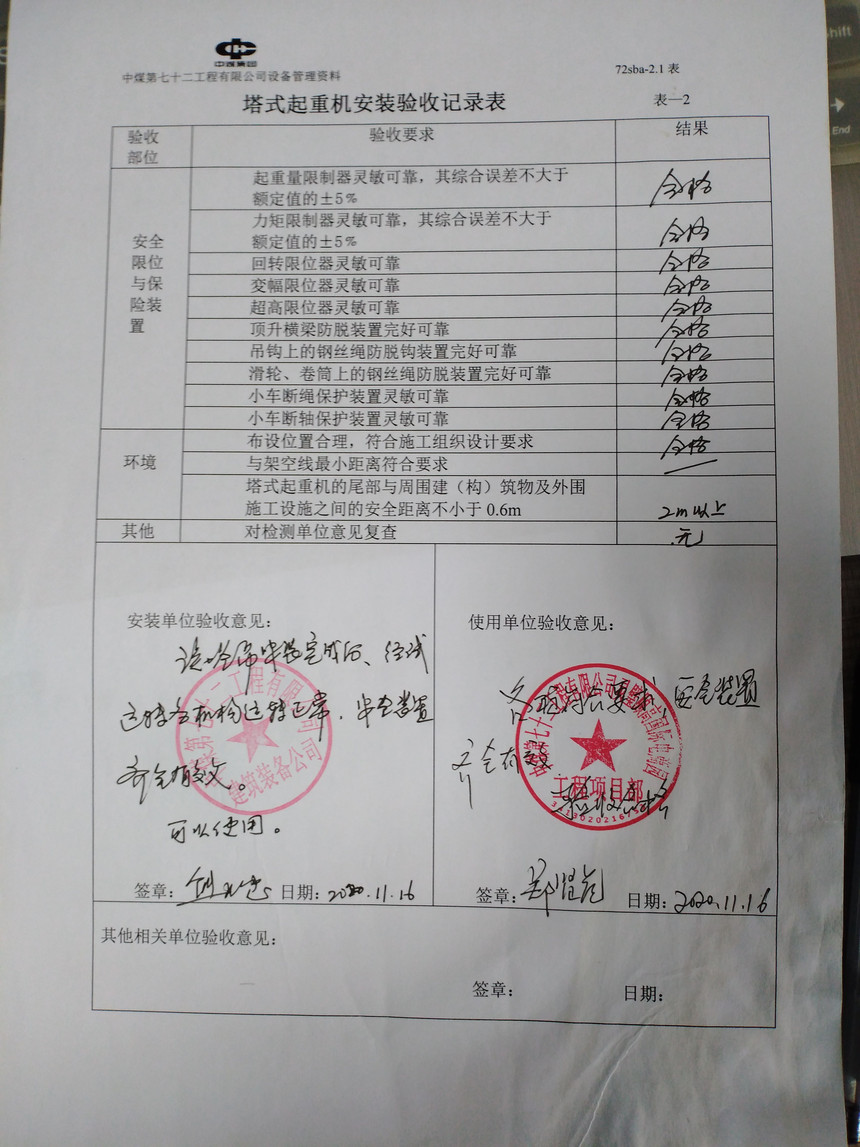 中煤集团
中煤第七十二工程有限公司设备管理资料
72sba-2.1 表
塔式起重机安装验收记录表
表—2
验收部位 验收要求 结果
安全限位与保险装置
起重量限制器灵敏可靠，其综合误差不大于
额定值的±5% 合格
力矩限制器灵敏可靠，其综合误差不大于
额定值的±5% 合格
回转限位器灵敏可靠 合格
变幅限位器灵敏可靠 合格
超高限位器灵敏可靠 合格
顶升横梁防脱装置完好可靠 合格
吊钩上的钢丝绳防脱钩装置完好可靠 合格
滑轮、卷筒上的钢丝绳防脱装置完好可靠 合格
小车断绳保护装置灵敏可靠 合格
小车断轴保护装置灵敏可靠 合格
环境
布设位置合理，符合施工组织设计要求 合格
与架空线最小距离符合要求
塔式起重机的尾部与周围建（构）筑物及外围
施工设施之间的安全距离不小于 0.6m 2m以上
其他 对检测单位意见复查 无
安装单位验收意见：
该塔吊安装完成后、经试
运转各机构运转正常，安全装置
齐全有效。
可以使用。
建筑装备公司
签章： 日期：2020.11.16
使用单位验收意见：
各项符合要求 安全装置
齐全有效
验收合格
工程项目部
签章： 日期：2020.11.16
其他相关单位验收意见：
签章： 日期：
Shift
End